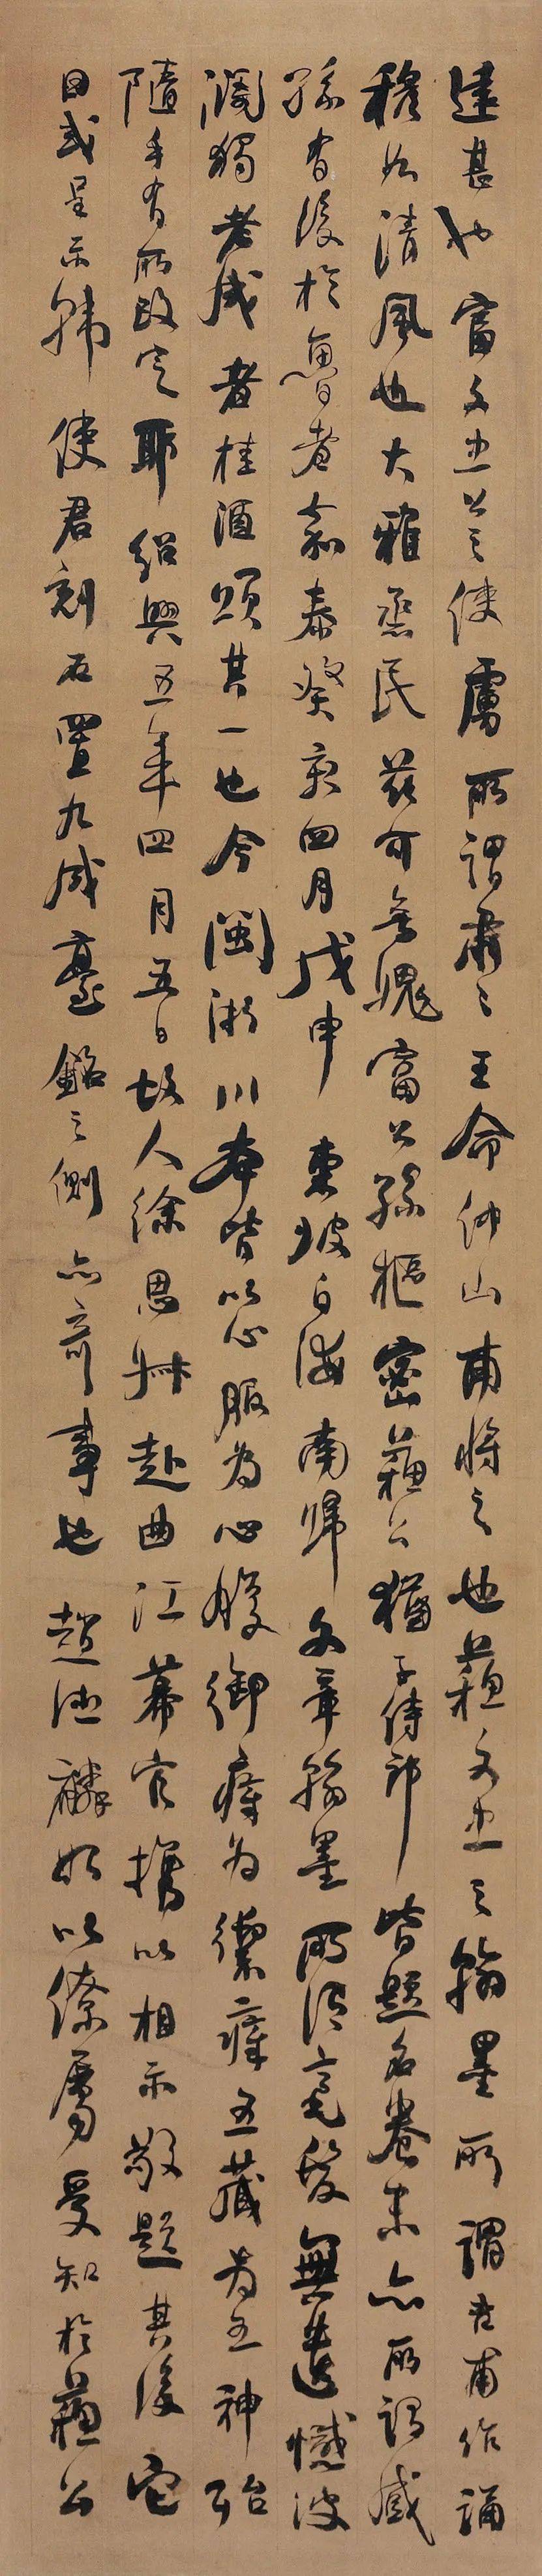 遠甚也富文忠公之使虜所謂肅〻王命仲山甫將之也蘇文忠之翰墨所謂吉甫作誦
穆如清風也大雅烝民茲可無愧富公孫樞密蘇公猶子侍郎皆題名卷末亦所謂臧
孫有後於魯者嘉泰癸亥四月戊申東坡自海南歸文章翰墨所得毫髮無遺憾波
瀾獨老成者桂酒頌其一也今閩浙川本皆以心服為心腹御瘴為禦瘴五藏為五神殆
隨手有所改定耶紹興五年四月五日故人徐思叔赴曲江幕官攜以相示敬題其後它
日或呈示韓使君刻石置九成臺銘之側亦奇事也趙德麟始以僚屬受知於蘇公